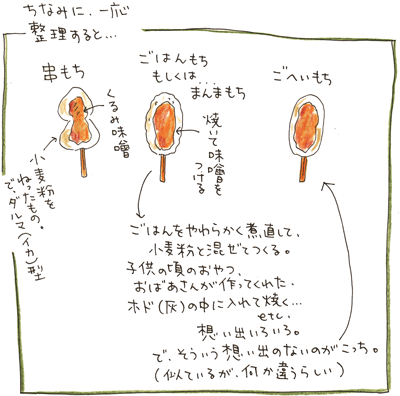 ちなみに、一応
整理すると…
串もち
くるみ味噌
小麦粉を
ねったもの。
で、ダルマ(イカ)型
ごはんもち
もしくは…
まんまもち
焼いて味噌を
つける
ごへいもち
ごはんをやわらかく煮直して、
小麦粉と混ぜてつくる。
子供の頃のおやつ、
おばあさんが作ってくれた。
ホド(灰)の中に入れて焼く…
etc.
想い出いろいろ。
で、そういう想い出のないのがこっち。
(似ているが、何か違うらしい)